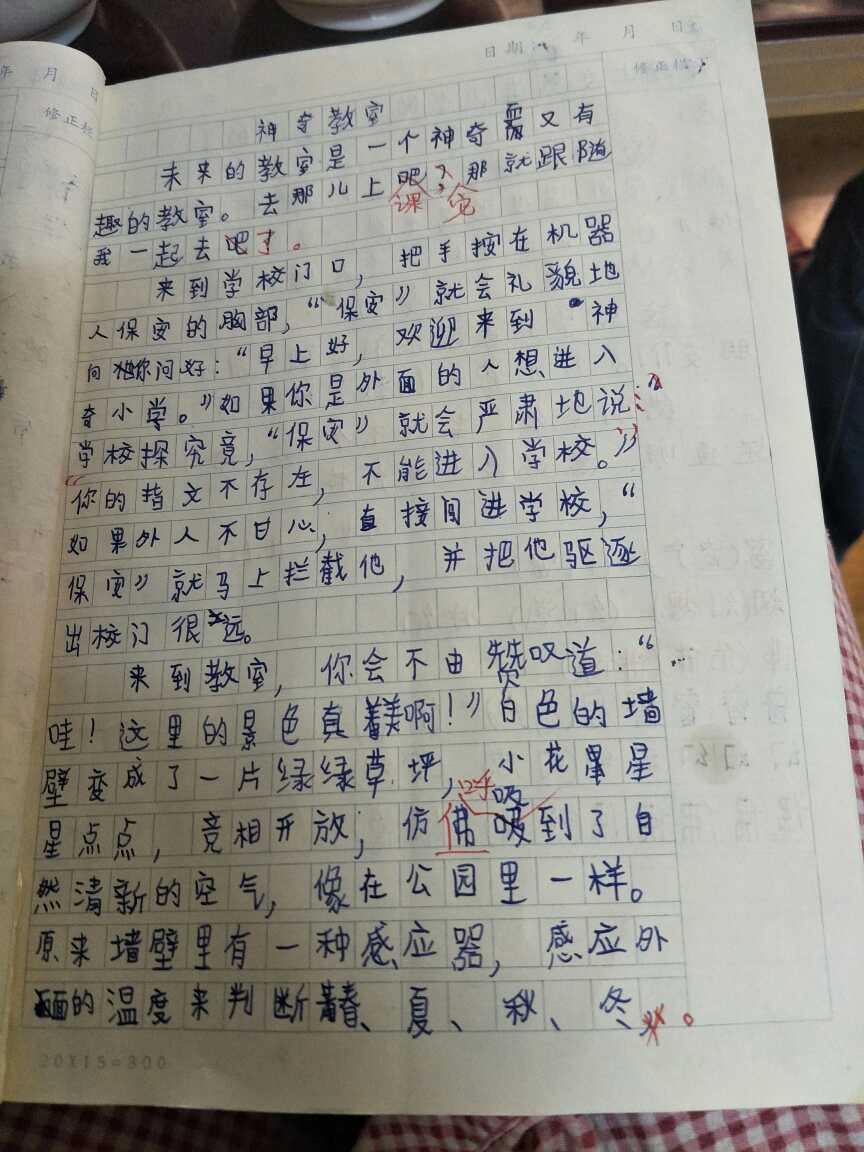 年 月 日
日期: 年 月 日
修正栏
修正栏
神奇教室
未来的教室是一个神奇又有
趣的教室。去那儿上课吧?那就跟随
我一起去吧了。
来到学校门口,把手按在机器
人保安的胸部,“保安”就会礼貌地
向你问好:“早上好,欢迎来到神
奇小学。”如果你是外面的人想进入
学校探究竟,“保安”就会严肃地说:
“你的指文不存在,不能进入学校。”
如果外人不甘心,直接闯进学校,“
保安”就马上拦截他,并把他驱逐
出校门很远。
来到教室,你会不由赞叹道:“
哇!这里的景色真美啊!”白色的墙
壁变成了一片绿绿草坪,小花星
呼吸
星点点,竞相开放,仿佛吸到了自
然清新的空气,像在公园里一样。
原来墙壁里有一种感应器,感应外
面的温度来判断春、夏、秋、冬。
20X15=300